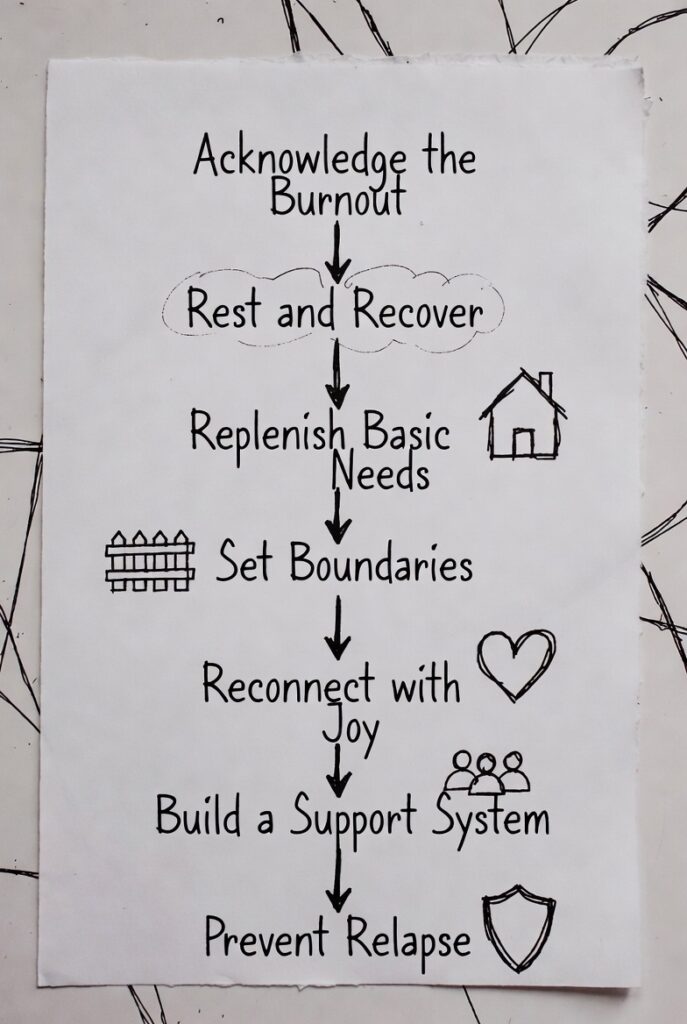 Acknowledge the
Burnout
Rest and Recover
Replenish Basic
Needs
Set Boundaries
Reconnect with
Joy
Build a Support System
Prevent Relapse